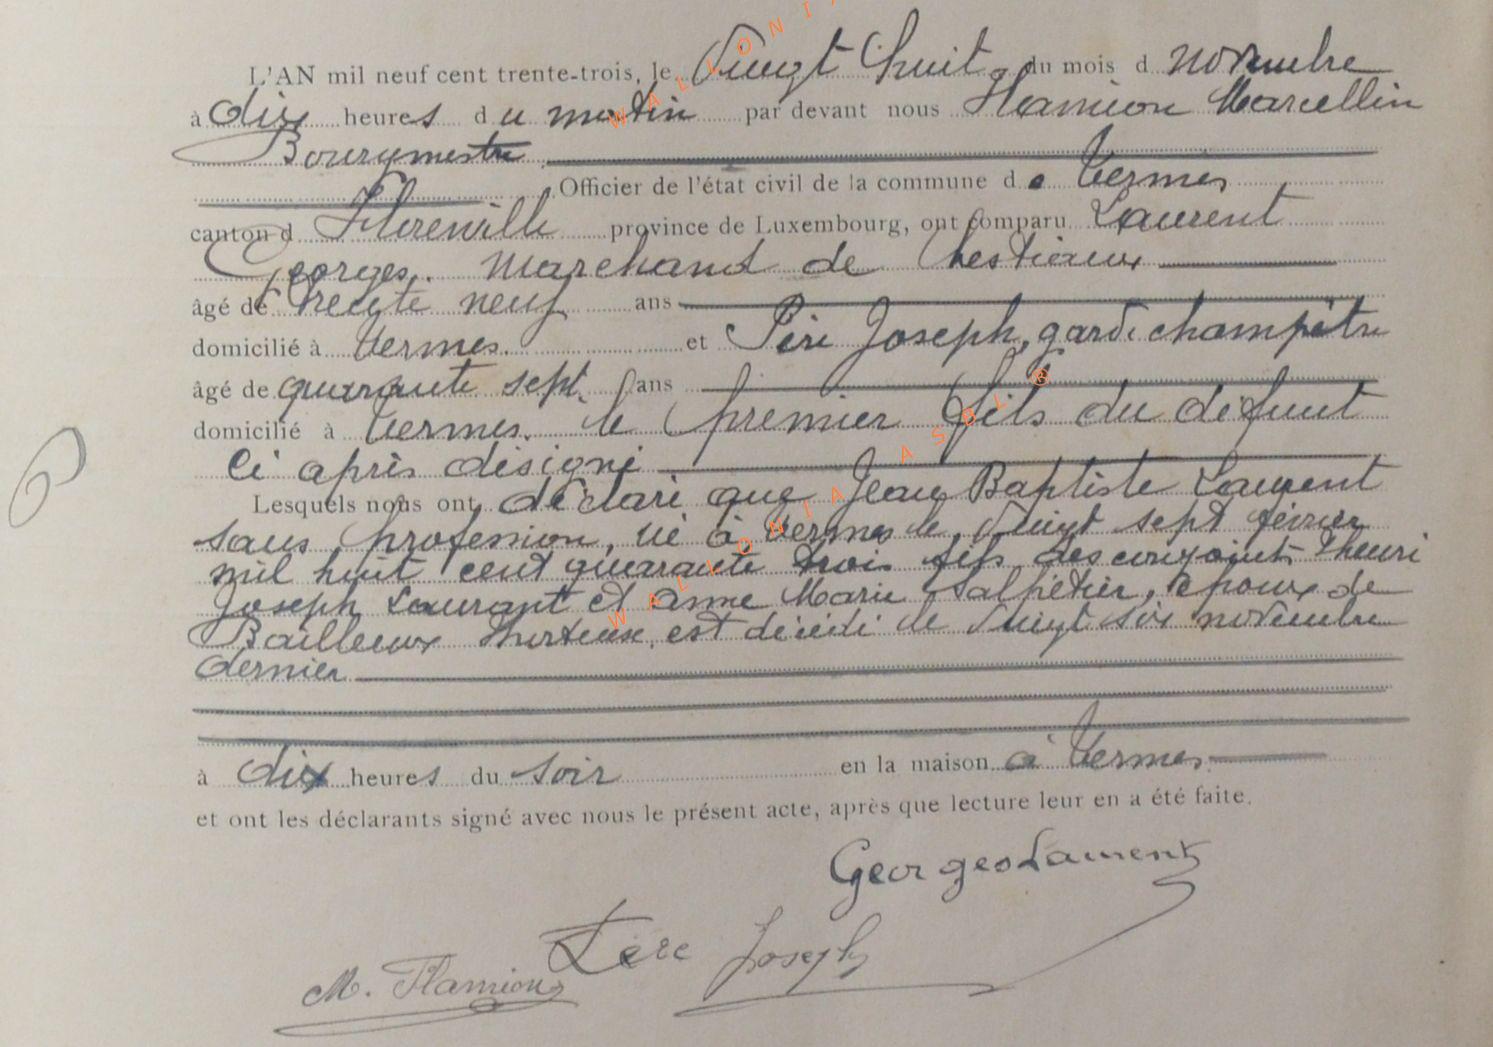 L'AN mil neuf cent trente-trois, le Vingt huit du mois d novembre
à dix heures du matin par devant nous Flamion Marcellin
Bourgmestre
Officier de l'état civil de la commune de Termes
canton d Florenville province de Luxembourg, ont comparu Laurent
Georges. Marchand de bestiaux
âgé de trente neuf ans
domicilié à Termes. et Père Joseph, garde champêtre
âgé de quarante sept ans
domicilié à Termes. le premier fils du défunt
ci après désigné
Lesquels nous ont déclaré que Jean Baptiste Laurent
sans profession, né à Termes le vingt sept février
mil huit cent quarante trois fils des conjoints Henri
Joseph Laurant et anne Marie Salpétier, époux de
Bailleux Hortense, est décédé le vingt six novembre
dernier
à dix heures du soir en la maison à Termes
et ont les déclarants signé avec nous le présent acte, après que lecture leur en a été faite.
Georges Laurent
Père Joseph
M. Flamion
WALLONIA ASBL ®
WALLONIA